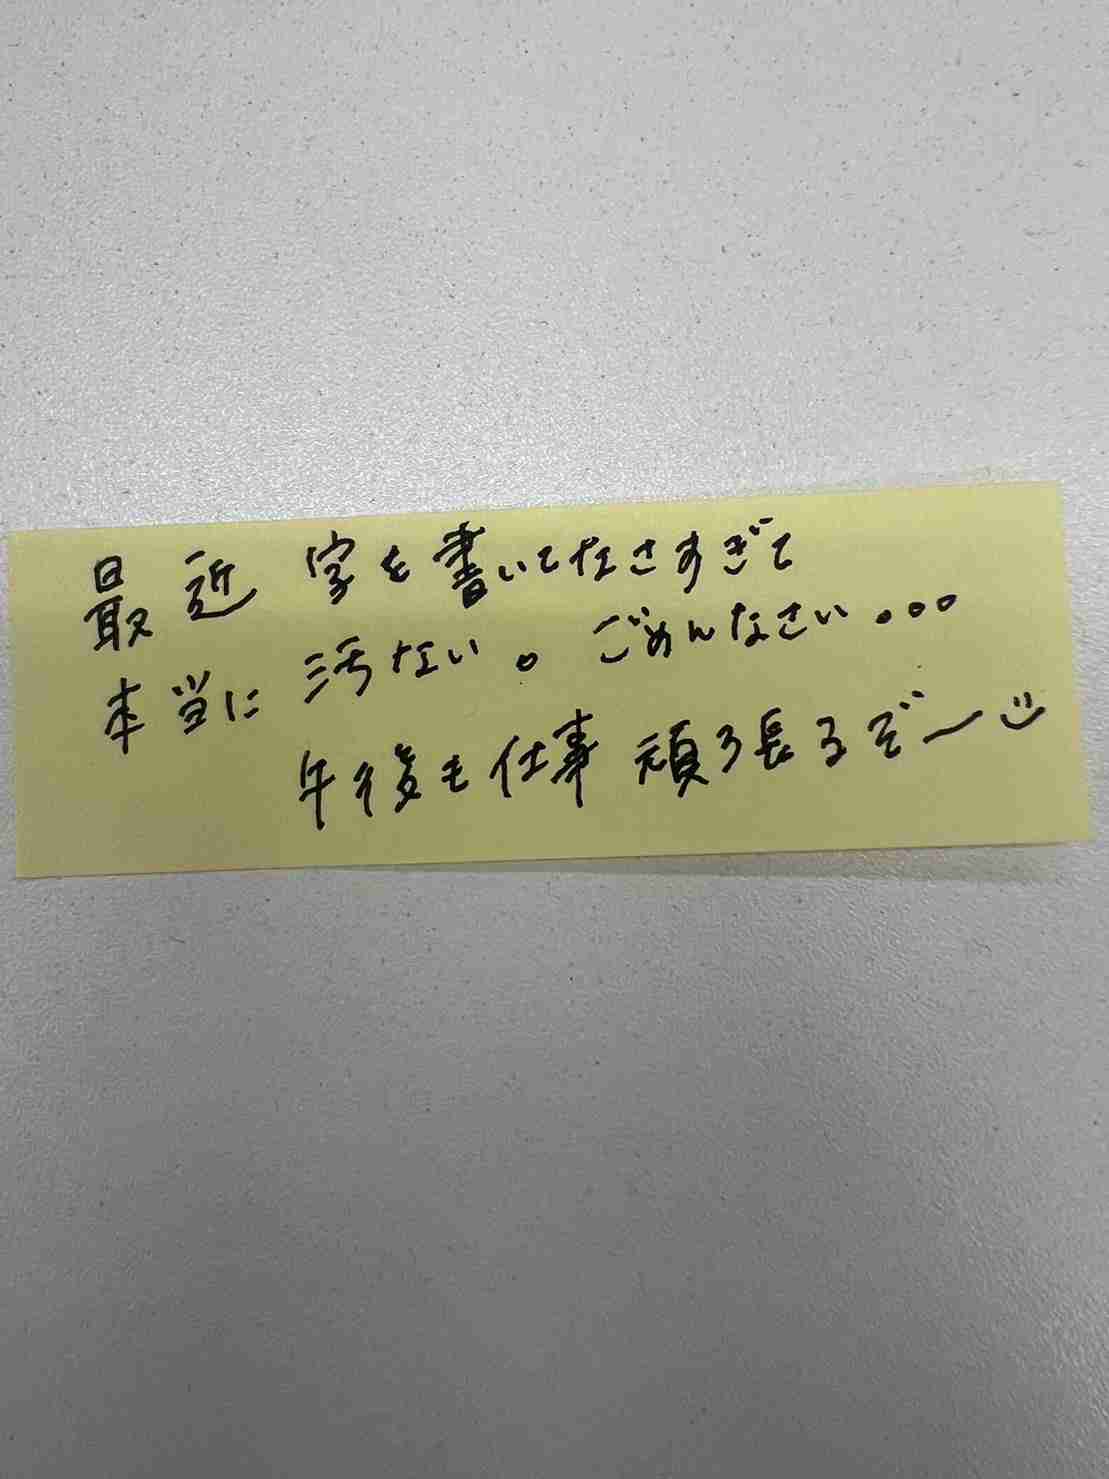 最近 字を書いてなさすぎて
本当に 汚ない。ごめんなさい...
午後も仕事 頑張るぞー